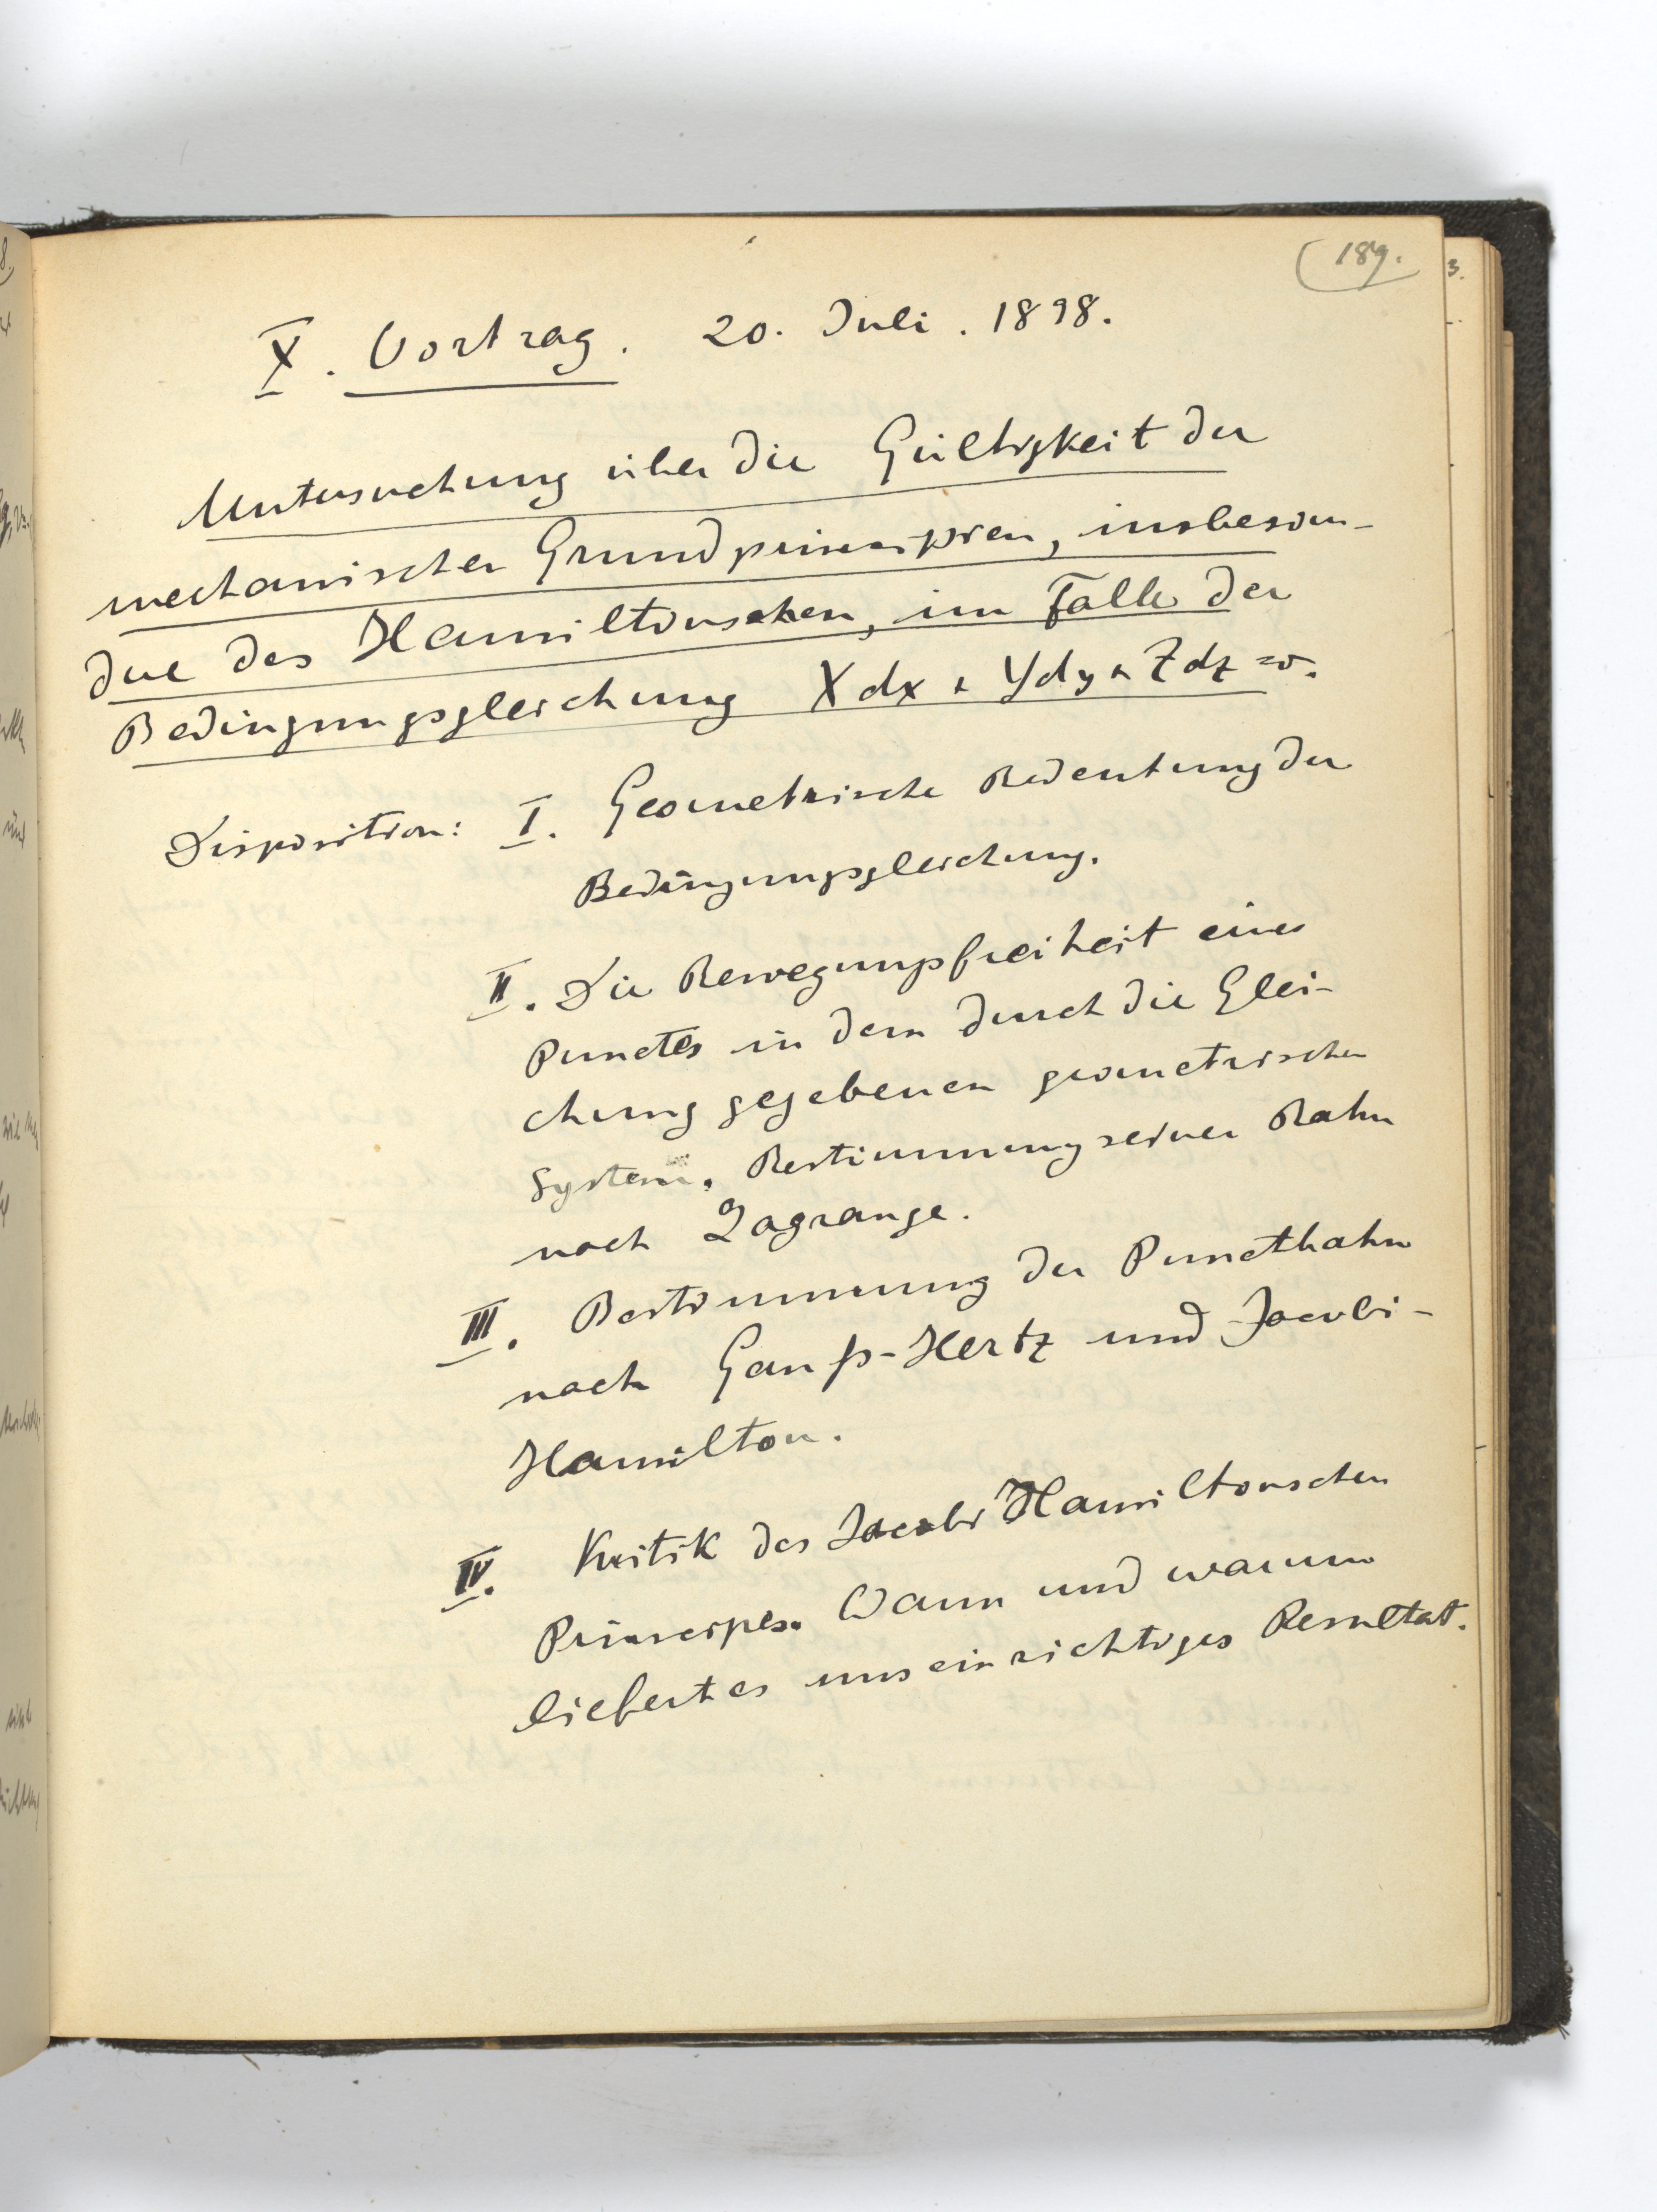 189.
X. Vortrag. 20. Juli. 1898.
Untersuchung über die Gültigkeit der
mechanischen Grundprincipien, insbeson-
dre des Hamiltonschen, im Falle der
Bedingungsgleichung Xdx + Ydy + Zdz = 0.
Disposition: I. Geometrische Bedeutung der
Bedingungsgleichung.
II. Die Bewegungsfreiheit eines
Punctes in dem durch die Glei-
chung gegebenen geometrischen
System. Bestimmung seiner Bahn
nach Lagrange.
III. Bestimmung der Punctbahn
nach Gauß-Hertz und Jacobi-
Hamilton.
IV. Kritik des Jacobi Hamiltonschen
Princips. Wann und warum
liefert es uns ein richtiges Resultat.